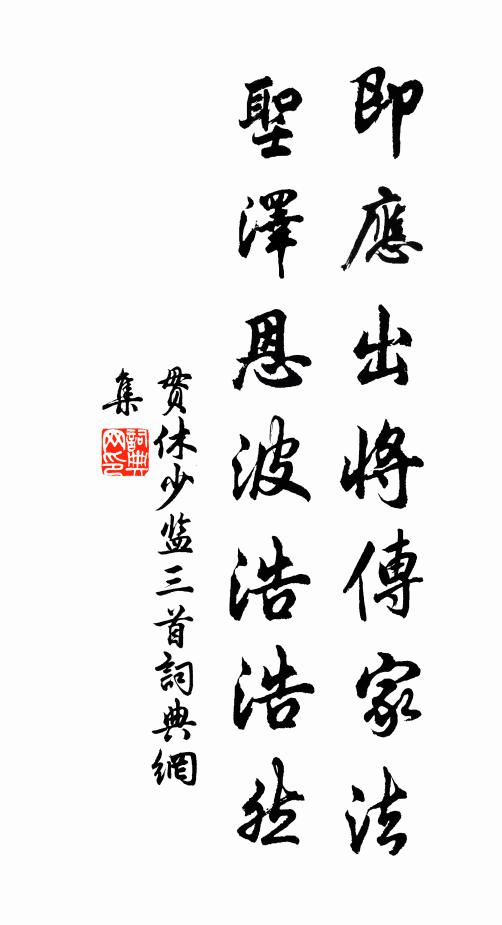 即應出將傳家法
聖澤恩波浩浩然
貫休少监三首詞典網
集
詞典网印